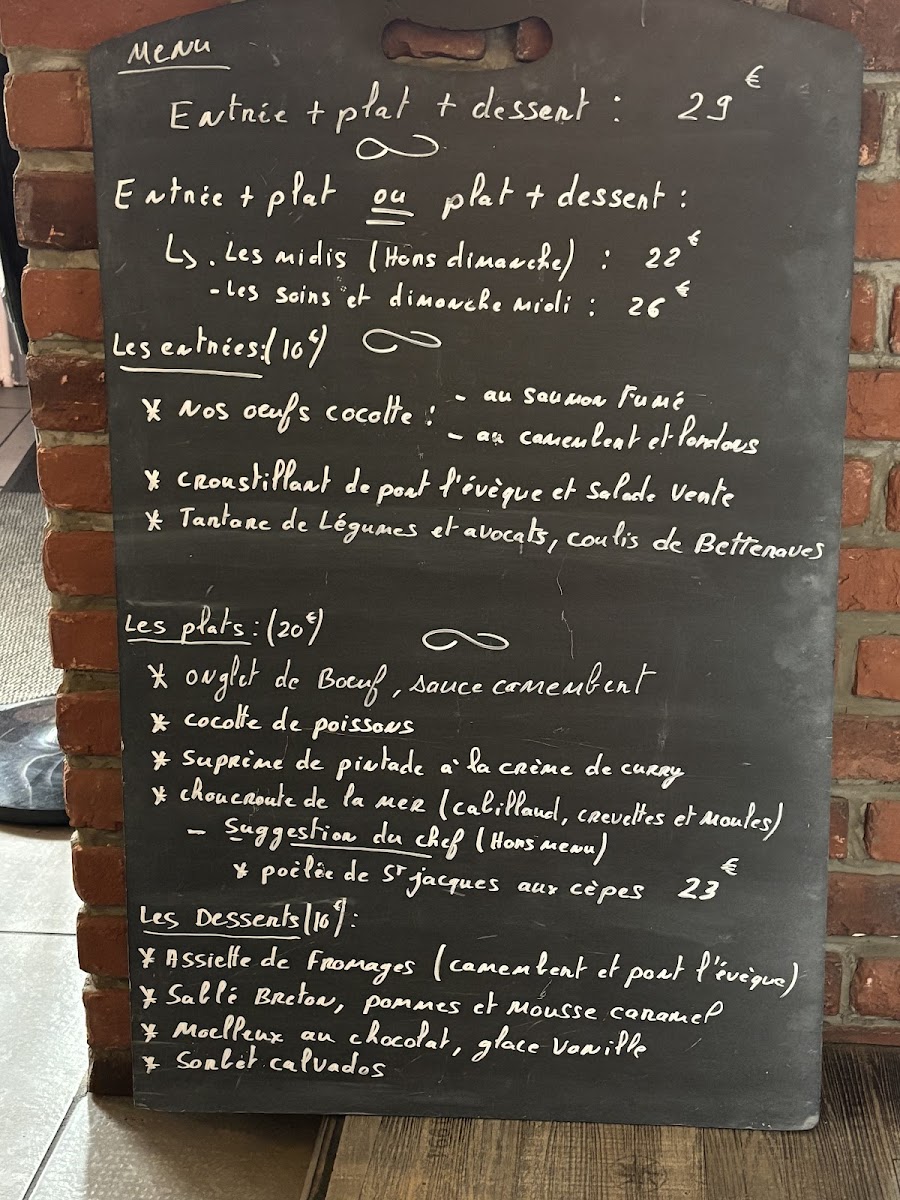 Menu
Entrée + plat + dessert : 29€
Entrée + plat ou plat + dessert :
↳ . Les midis (Hors dimanche) : 22€
- Les soirs et dimanche midi : 26€
Les entrées : (10€)
* Nos oeufs cocotte : - au saumon fumé
- au camembert et lardons
* croustillant de pont l'évèque et salade verte
* Tartare de Légumes et avocats, coulis de Betteraves
Les plats : (20€)
* onglet de Boeuf, sauce camembert
* cocotte de poissons
* suprème de pintade à la crème de curry
* choucroute de la mer (cabillaud, crevettes et moules)
- Suggestion du chef (Hors menu)
* poèlée de St jacques aux cèpes 23€
Les Desserts (10€) :
* Assiette de Fromages (camembert et pont l'évèque)
* Sablé Breton, pommes et mousse caramel
* Moelleux au chocolat, glace vanille
* Sorbet calvados